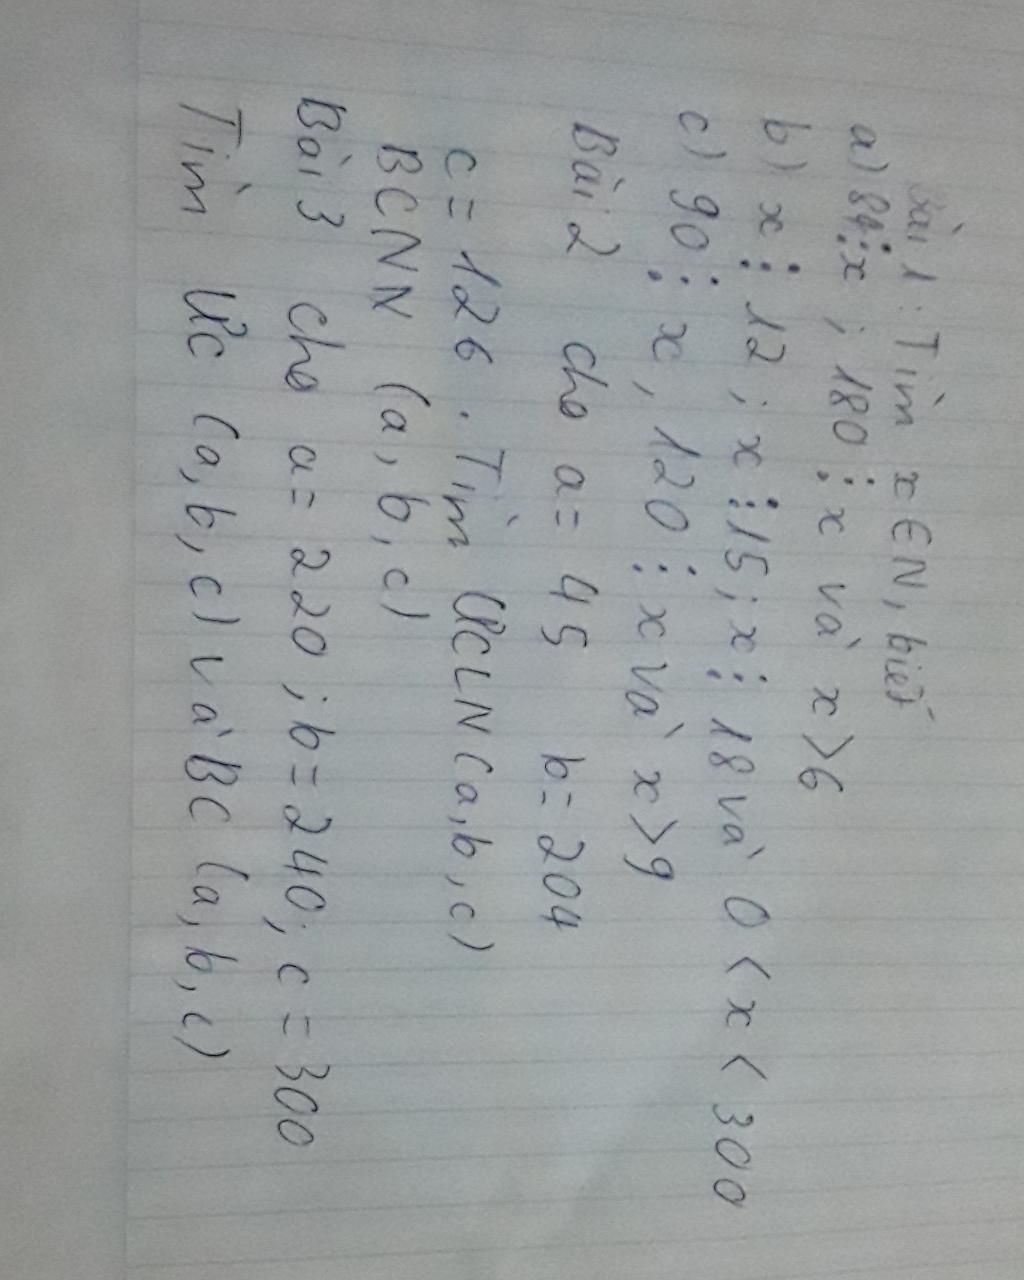 Bài 1 : Tìm x ∈ N, biết
a) 84 ⋮ x ; 180 ⋮ x và x > 6
b) x ⋮ 12 ; x ⋮ 15 ; x ⋮ 18 và 0 < x < 300
c) 90 ⋮ x , 120 ⋮ x và x > 9
Bài 2 cho a = 45 b = 204
c = 126 . Tìm ƯCLN (a, b, c)
BCNN (a, b, c)
Bài 3 cho a = 220 ; b = 240 ; c = 300
Tìm ƯC (a, b, c) và BC (a, b, c)